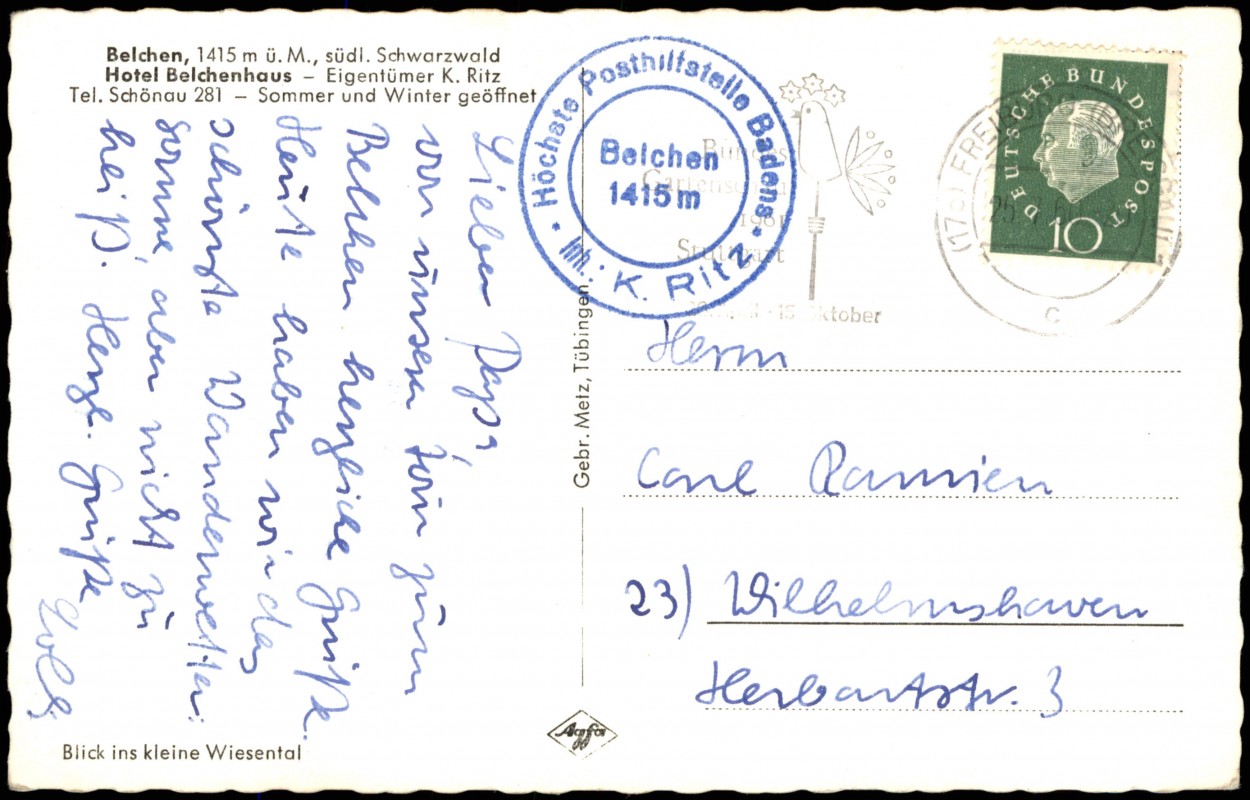 Belchen, 1415 m ü. M., südl. Schwarzwald
Hotel Belchenhaus – Eigentümer K. Ritz
Tel. Schönau 281 – Sommer und Winter geöffnet
Lieber Papa,
von unserer Tour zum
Belchen herzliche Grüße.
Heute haben wir das
schönste Wanderwetter:
Sonne, aber nicht zu
heiß. Herzl. Grüße
Blick ins kleine Wiesental
Gebr. Metz, Tübingen
Agfa
Höchste Posthilfstelle Badens
Belchen
1415 m
Inh.: K. Ritz
Bundes
Gartenschau
1961
Stuttgart
15. Oktober
DEUTSCHE BUNDESPOST
10
(17b) FREIBURG
c
Herrn
Carl Ramien
23) Wilhelmshaven
Herbartstr. 3